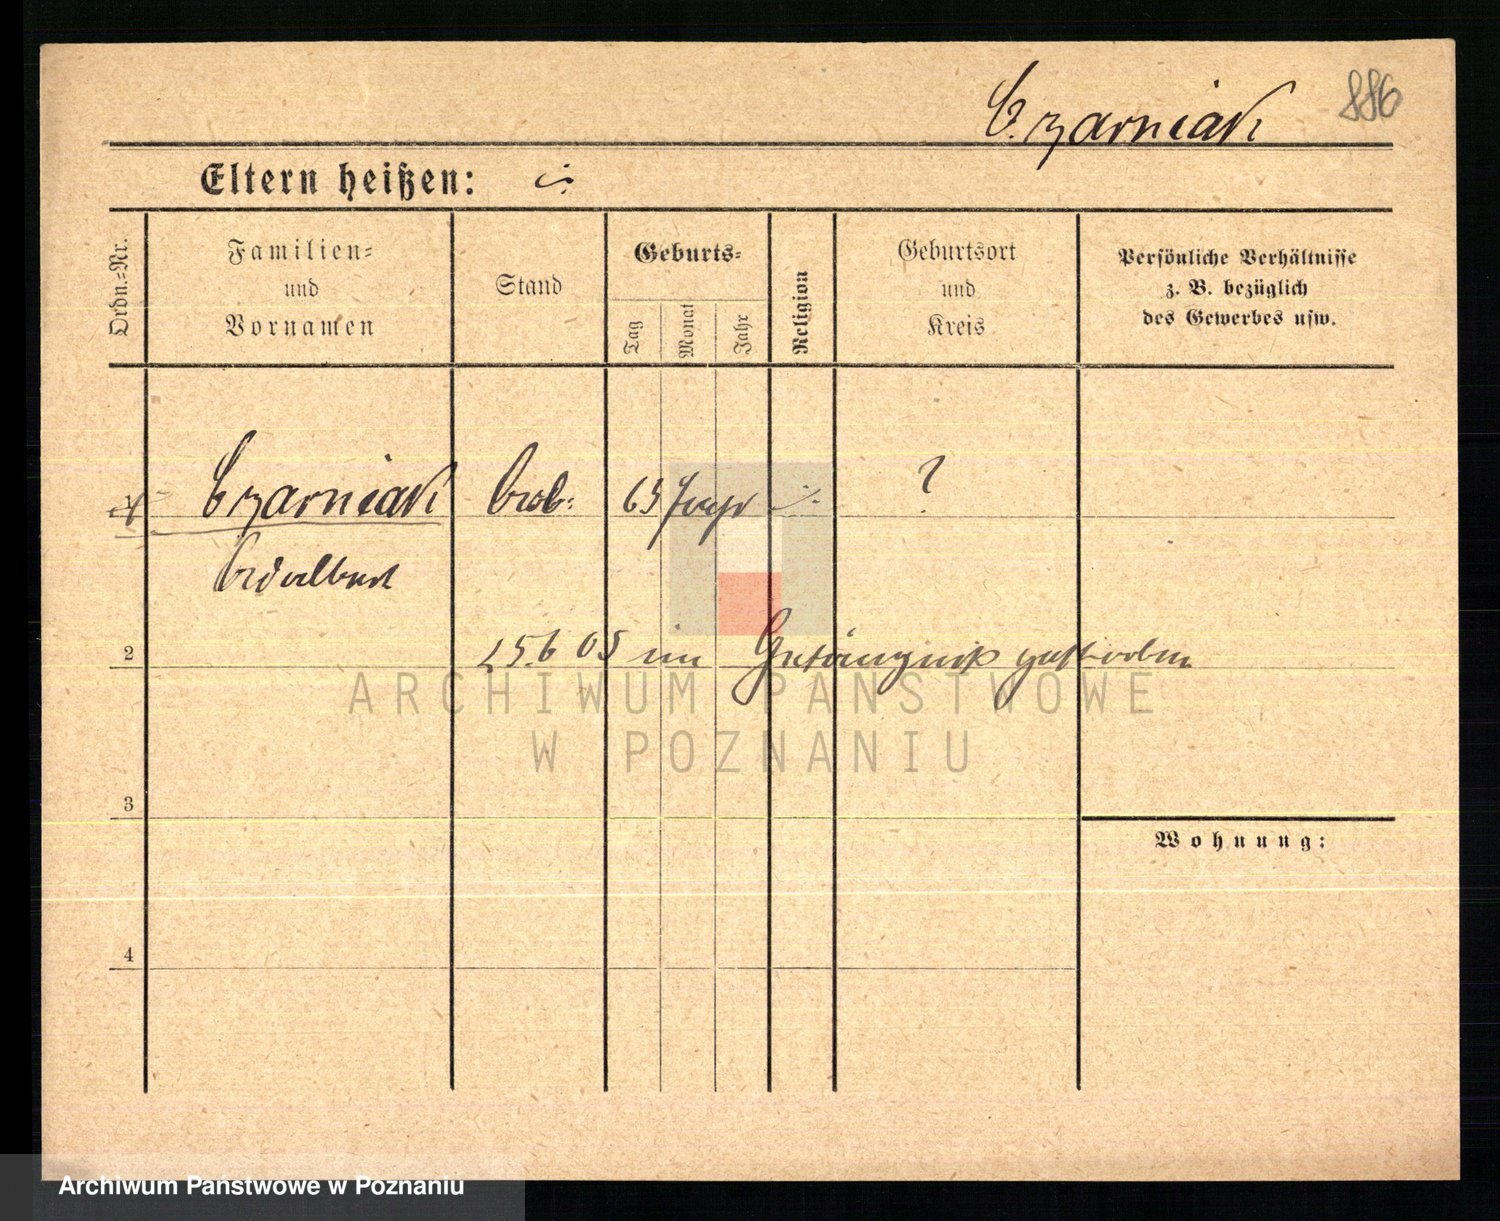 Czarniak 886
Eltern heißen:
Ordn.-Nr.
Familien-
und
Vornamen
Stand
Geburts-
Tag
Monat
Jahr
Religion
Geburtsort
und
Kreis
Persönliche Verhältnisse
z. B. bezüglich
des Gewerbes usw.
Czarniak Arb: 63 Jahr ?
Adalbert
2
25.6 05 im Gefängniß gestorben
ARCHIWUM PAŃSTWOWE
W POZNANIU
3
Wohnung:
4
Archiwum Państwowe w Poznaniu